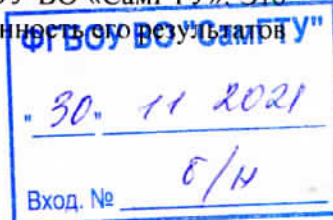 У ВО «СамГТУ». Это
нность его результатов
ФГБОУ ВО "СамГТУ"
" 30 " 11 2021
Вход. № б/н